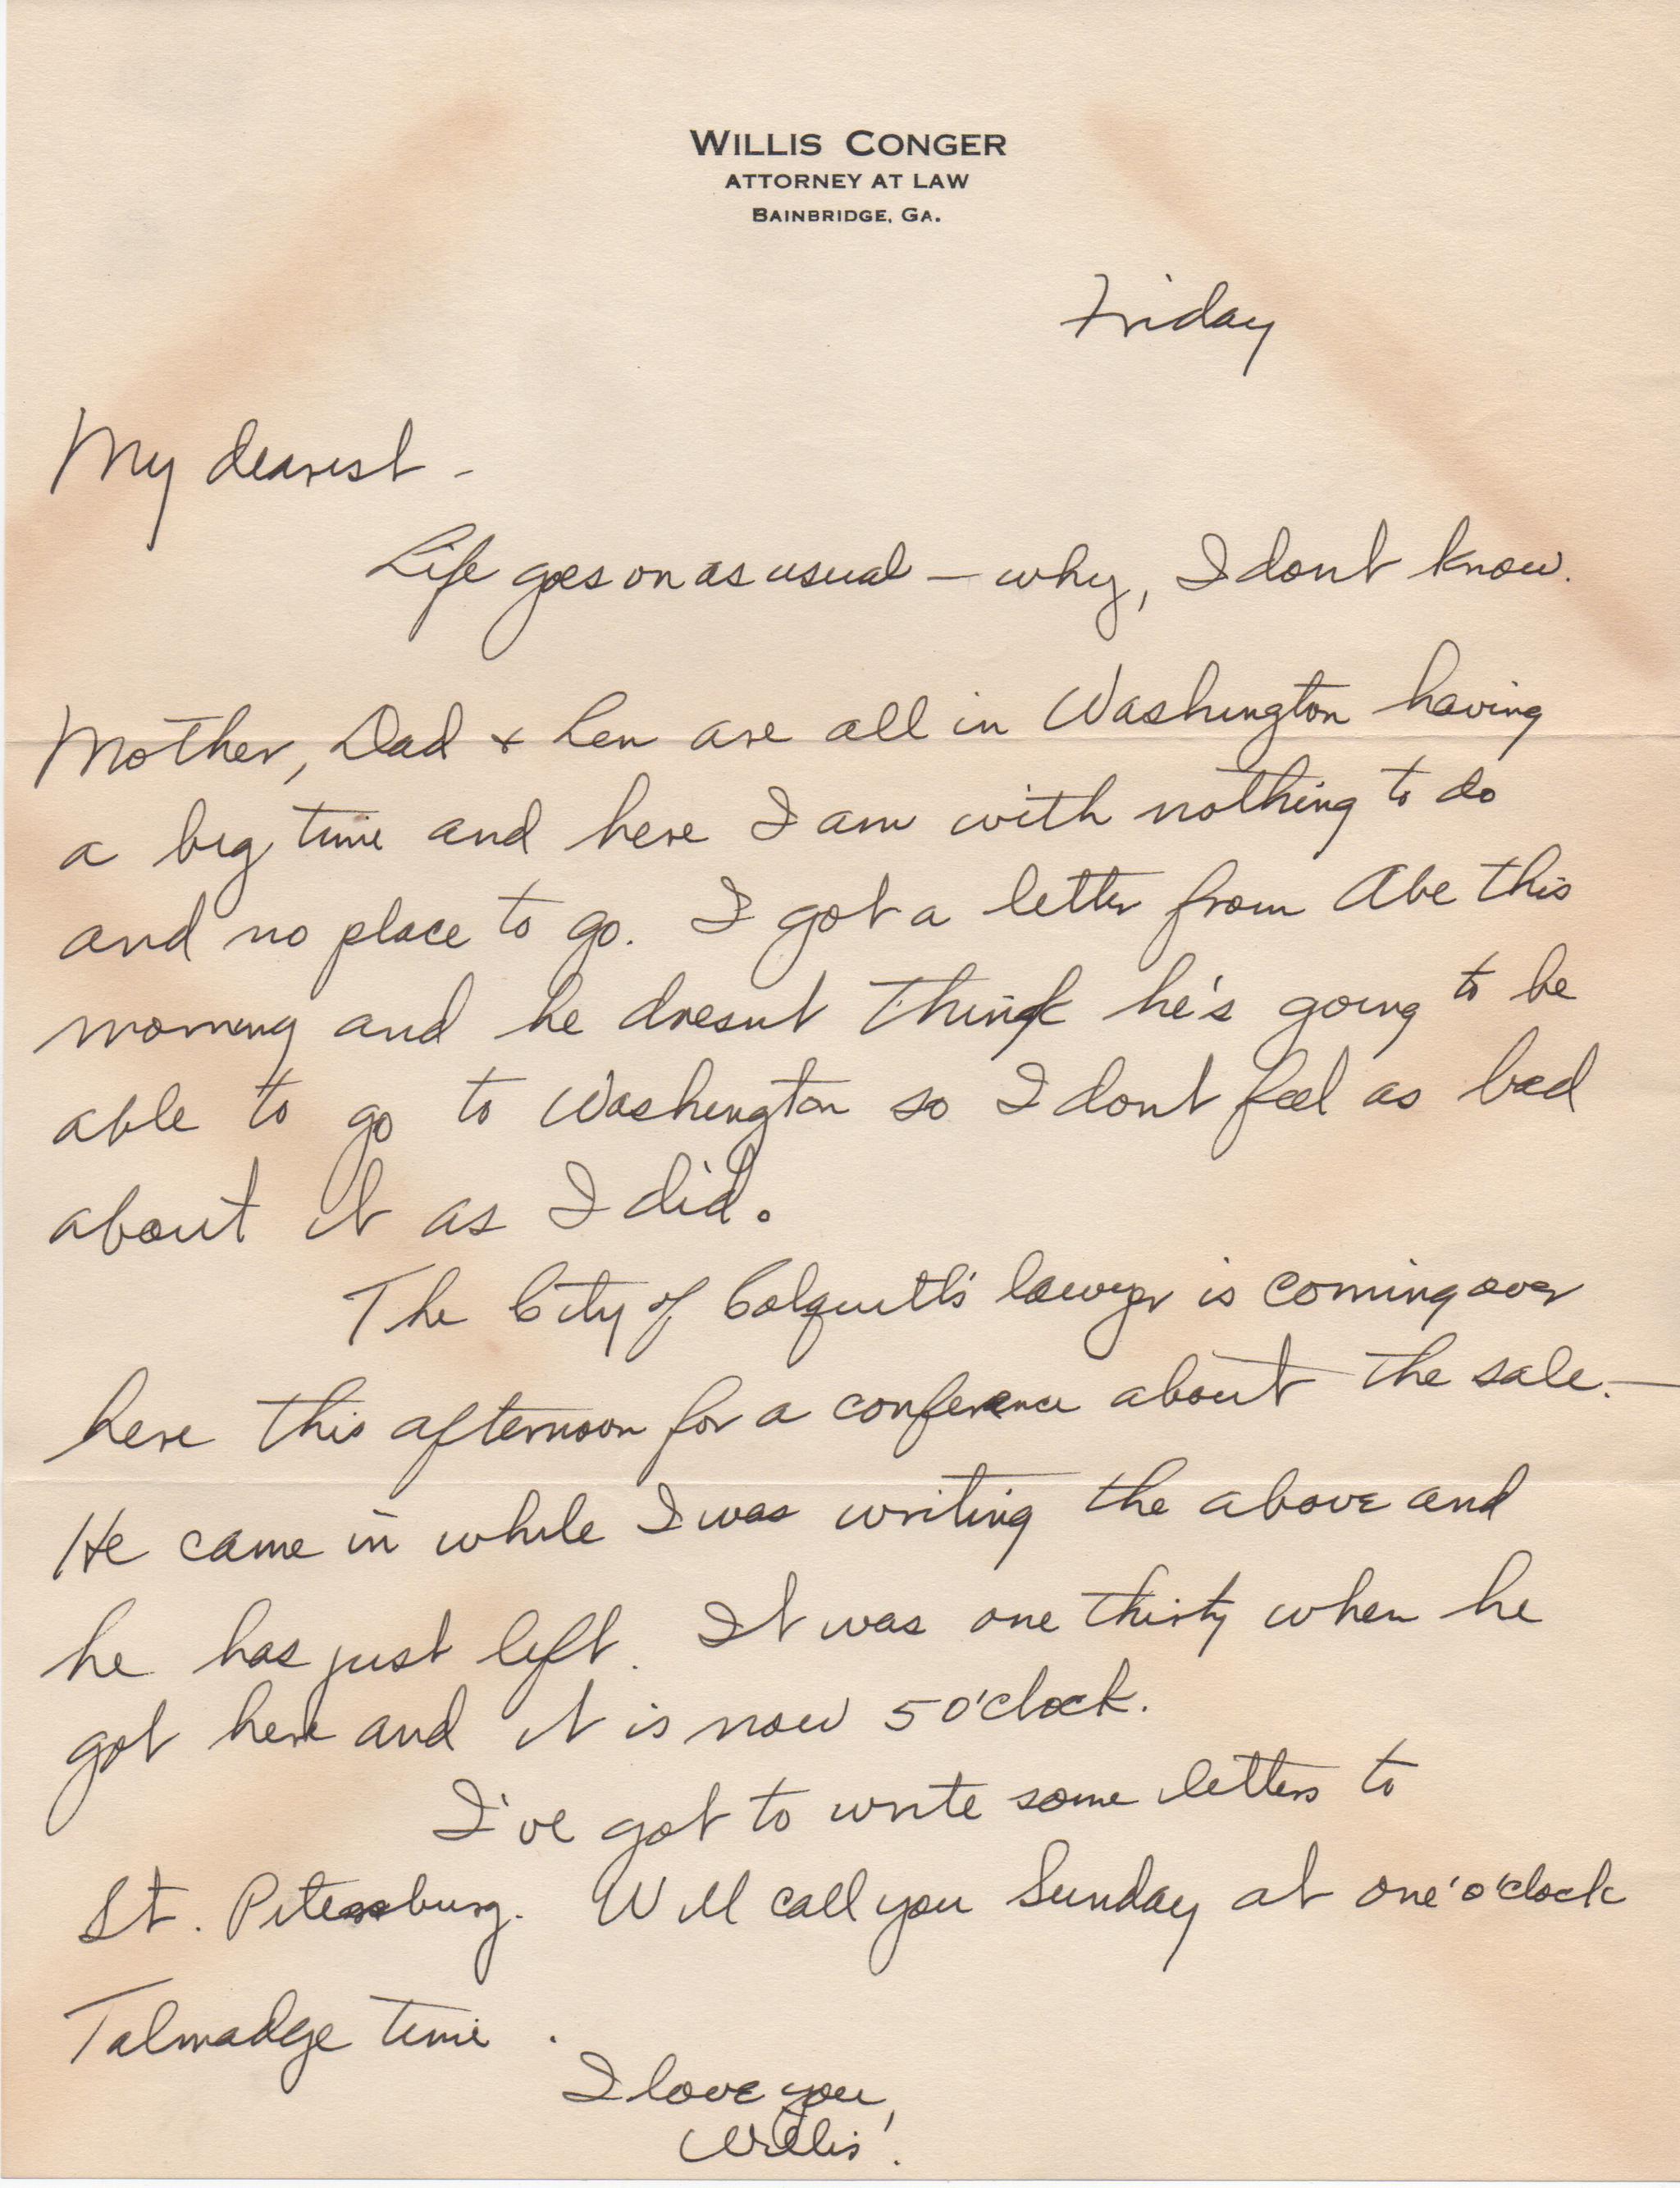 WILLIS CONGER
ATTORNEY AT LAW
BAINBRIDGE, GA.
Friday
My dearest -
Life goes on as usual — why, I dont know.
Mother, Dad + Len are all in Washington having
a big time and here I am with nothing to do
and no place to go. I got a letter from Abe this
morning and he doesnt think he's going to be
able to go to Washington so I dont feel as bad
about it as I did.
The City of Colquitt's lawyer is coming over
here this afternoon for a conference about the sale. —
He came in while I was writing the above and
he has just left. It was one thirty when he
got here and it is now 5 o'clock.
I've got to write some letters to
St. Petersburg. Will call you Sunday at one 'o'clock
Talmadge time.
I love you,
Willis.